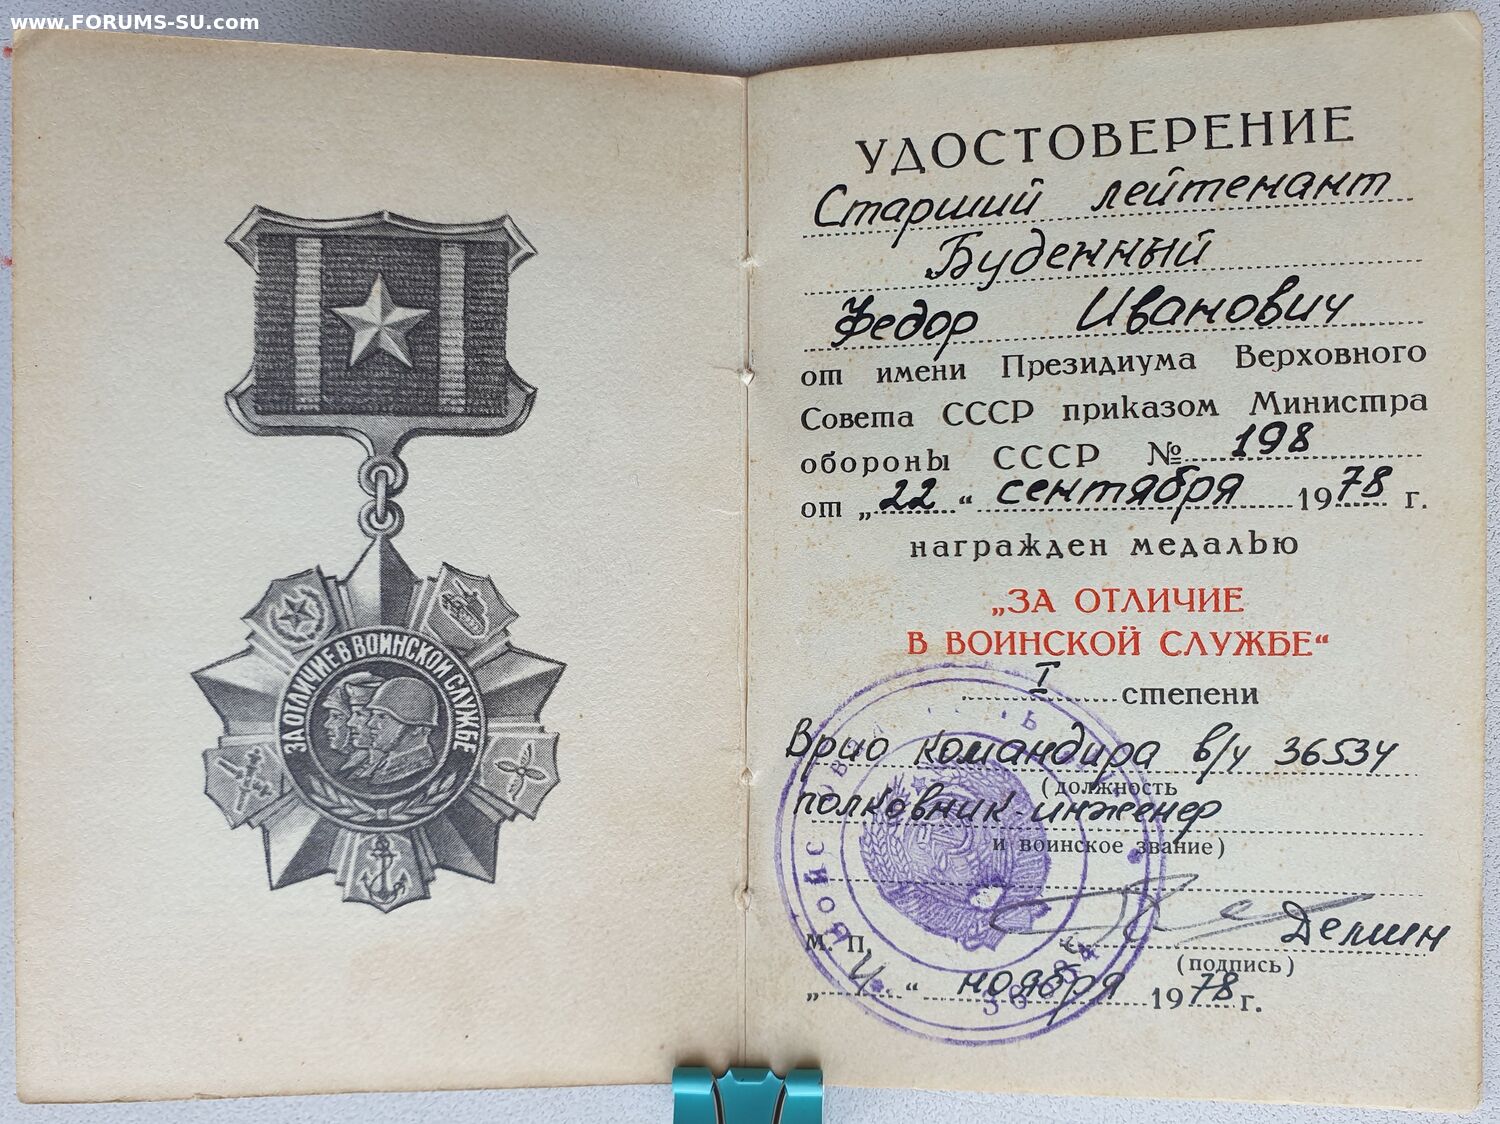 www.FORUMS-SU.com
ЗА ОТЛИЧИЕ В ВОИНСКОЙ СЛУЖБЕ
УДОСТОВЕРЕНИЕ
Старший лейтенант
Буденный
Федор Иванович
от имени Президиума Верховного
Совета СССР приказом Министра
обороны СССР № 198
от „22“ сентября 1978 г.
награжден медалью
„ЗА ОТЛИЧИЕ
В ВОИНСКОЙ СЛУЖБЕ“
I степени
Врио командира в/ч 36534
(должность
полковник-инженер
и воинское звание)
Демин
(подпись)
М. П.
„4“ ноября 1978 г.